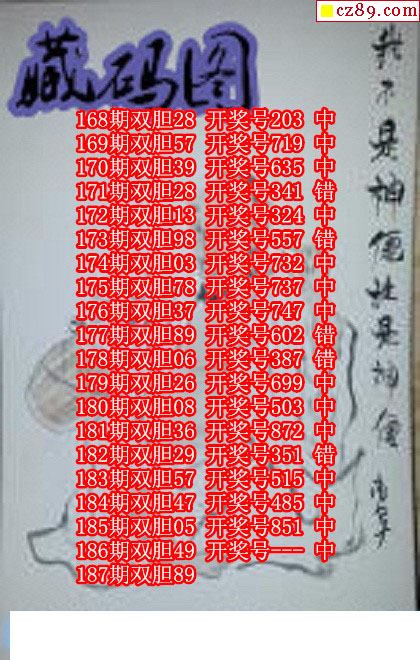 cz89.com
藏码图
168期双胆28 开奖号203 中
169期双胆57 开奖号719 中
170期双胆39 开奖号635 中
171期双胆28 开奖号341 错
172期双胆13 开奖号324 中
173期双胆98 开奖号557 错
174期双胆03 开奖号732 中
175期双胆78 开奖号737 中
176期双胆37 开奖号747 中
177期双胆89 开奖号602 错
178期双胆06 开奖号387 错
179期双胆26 开奖号699 中
180期双胆08 开奖号503 中
181期双胆36 开奖号872 中
182期双胆29 开奖号351 错
183期双胆57 开奖号515 中
184期双胆47 开奖号485 中
185期双胆05 开奖号851 中
186期双胆49 开奖号--- 中
187期双胆89
我不是神
是神